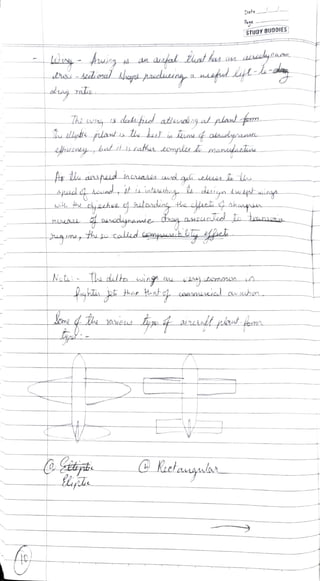 Date
Page
STUDY BUDDIES
Wing - A wing is an airfoil that has an aerodynamic
cross-sectional shape producing a useful lift-to-drag
drag ratio
The wing is classified according plant form.
The elliptic plant is the best in terms of aerodynamic
efficiency, but it is rather complex to manufacture
As the airspeed increases and gets closer to the
speed of sound, it is interesting to design swept wings
with the objective of retarding the effects of sharper
increase of aerodynamic drag associated to transonic
regime, the so called compressibility effects
Note:- The delta wings are very common in
fighter jets than that of commercial aviation.
Some of the various types of aircraft plant form
types:-
@ Elliptic
@ Rectangular
Elliptic